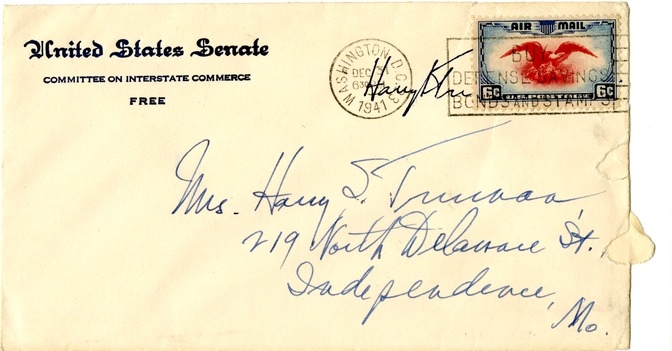 United States Senate
COMMITTEE ON INTERSTATE COMMERCE
FREE
WASHINGTON, D.C.
DEC
1941
Harry
AIR MAIL
BUY
DEFENSE SAVINGS
BONDS AND STAMPS
6¢ 6¢
Mrs. Harry S. Truman,
219 North Delaware St.,
Independence,
Mo.